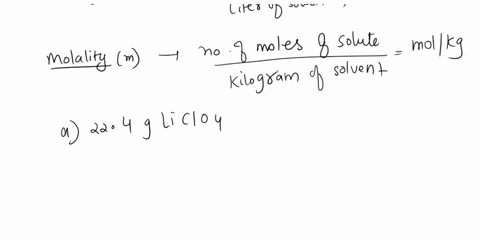 Liter of
Molality (m) → no. of moles of solute = mol/kg
Kilogram of solvent
a) 22.4 g LiClO4